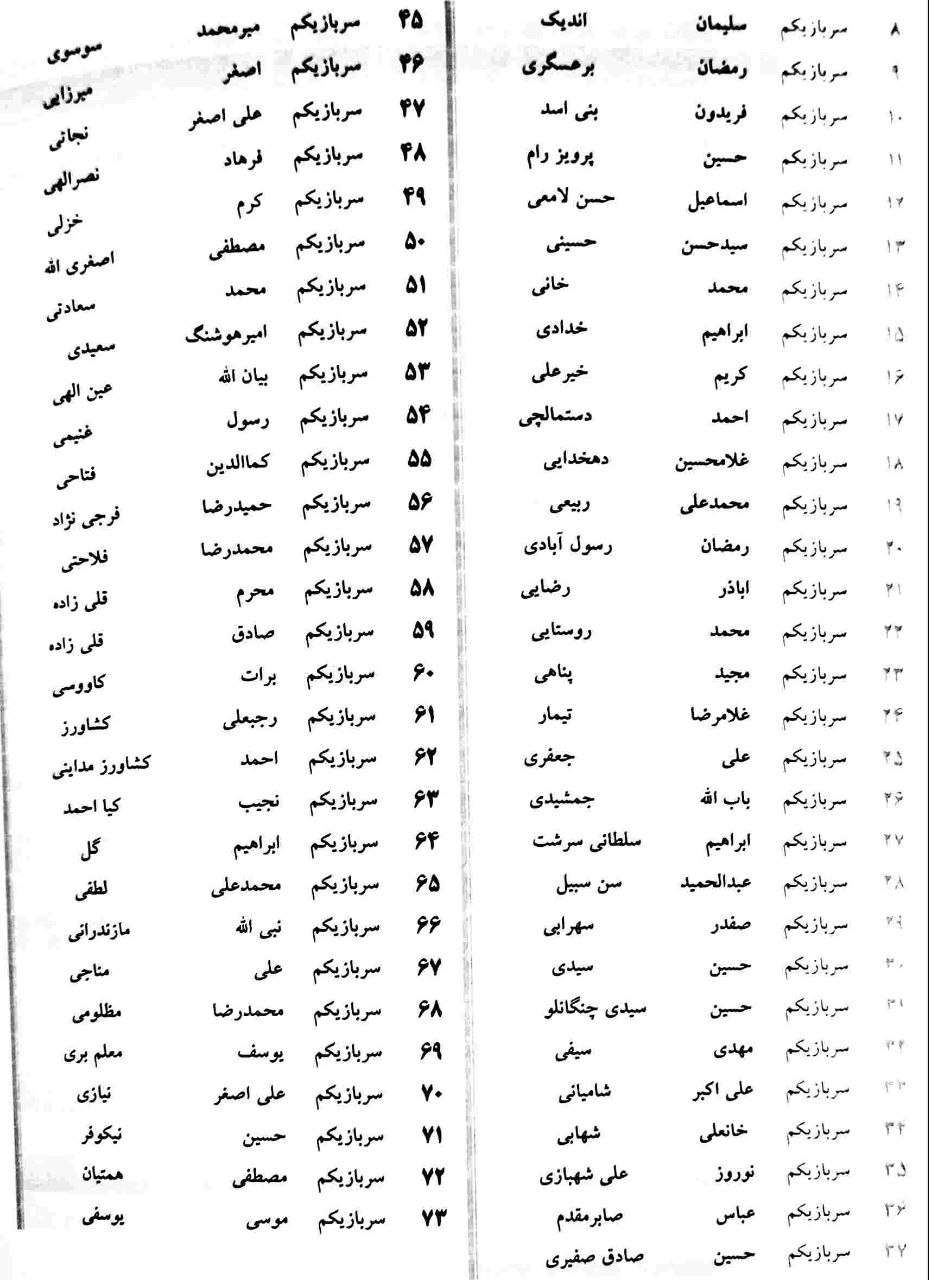 ۸ سربازیکم سلیمان اندیک
۹ سربازیکم رمضان برعسگری
۱۰ سربازیکم فریدون بنی اسد
۱۱ سربازیکم حسین پرویز رام
۱۲ سربازیکم اسماعیل حسن لامعی
۱۳ سربازیکم سیدحسن حسینی
۱۴ سربازیکم محمد خانی
۱۵ سربازیکم ابراهیم خدادی
۱۶ سربازیکم کریم خیرعلی
۱۷ سربازیکم احمد دستمالچی
۱۸ سربازیکم غلامحسین دهخدایی
۱۹ سربازیکم محمدعلی ربیعی
۲۰ سربازیکم رمضان رسول آبادی
۲۱ سربازیکم اباذر رضایی
۲۲ سربازیکم محمد روستایی
۲۳ سربازیکم مجید پناهی
۲۴ سربازیکم غلامرضا تیمار
۲۵ سربازیکم علی جعفری
۲۶ سربازیکم باب الله جمشیدی
۲۷ سربازیکم ابراهیم سلطانی سرشت
۲۸ سربازیکم عبدالحمید سن سبیل
۲۹ سربازیکم صفدر سهرابی
۳۰ سربازیکم حسین سیدی
۳۱ سربازیکم حسین سیدی چنگانلو
۳۲ سربازیکم مهدی سیفی
۳۳ سربازیکم علی اکبر شامیانی
۳۴ سربازیکم خانعلی شهابی
۳۵ سربازیکم نوروز علی شهبازی
۳۶ سربازیکم عباس صابرمقدم
۳۷ سربازیکم حسین صادق صفیری
۴۵ سربازیکم میرمحمد سوسوی
۴۶ سربازیکم اصغر میرزایی
۴۷ سربازیکم علی اصغر نجاتی
۴۸ سربازیکم فرهاد نصرالهی
۴۹ سربازیکم کرم خزلی
۵۰ سربازیکم مصطفی اصغری الله
۵۱ سربازیکم محمد سعادتی
۵۲ سربازیکم امیرهوشنگ سعیدی
۵۳ سربازیکم بیان الله عین الهی
۵۴ سربازیکم رسول غنیمی
۵۵ سربازیکم کماالدین فتاحی
۵۶ سربازیکم حمیدرضا فرجی نژاد
۵۷ سربازیکم محمدرضا فلاحتی
۵۸ سربازیکم محرم قلی زاده
۵۹ سربازیکم صادق قلی زاده
۶۰ سربازیکم برات کاووسی
۶۱ سربازیکم رجبعلی کشاورز
۶۲ سربازیکم احمد کشاورز مداینی
۶۳ سربازیکم نجیب کیا احمد
۶۴ سربازیکم ابراهیم گل
۶۵ سربازیکم محمدعلی لطفی
۶۶ سربازیکم نبی الله مازندرانی
۶۷ سربازیکم علی مناجی
۶۸ سربازیکم محمدرضا مظلومی
۶۹ سربازیکم یوسف معلم بری
۷۰ سربازیکم علی اصغر نیازی
۷۱ سربازیکم حسین نیکوفر
۷۲ سربازیکم مصطفی همتیان
۷۳ سربازیکم موسی یوسفی